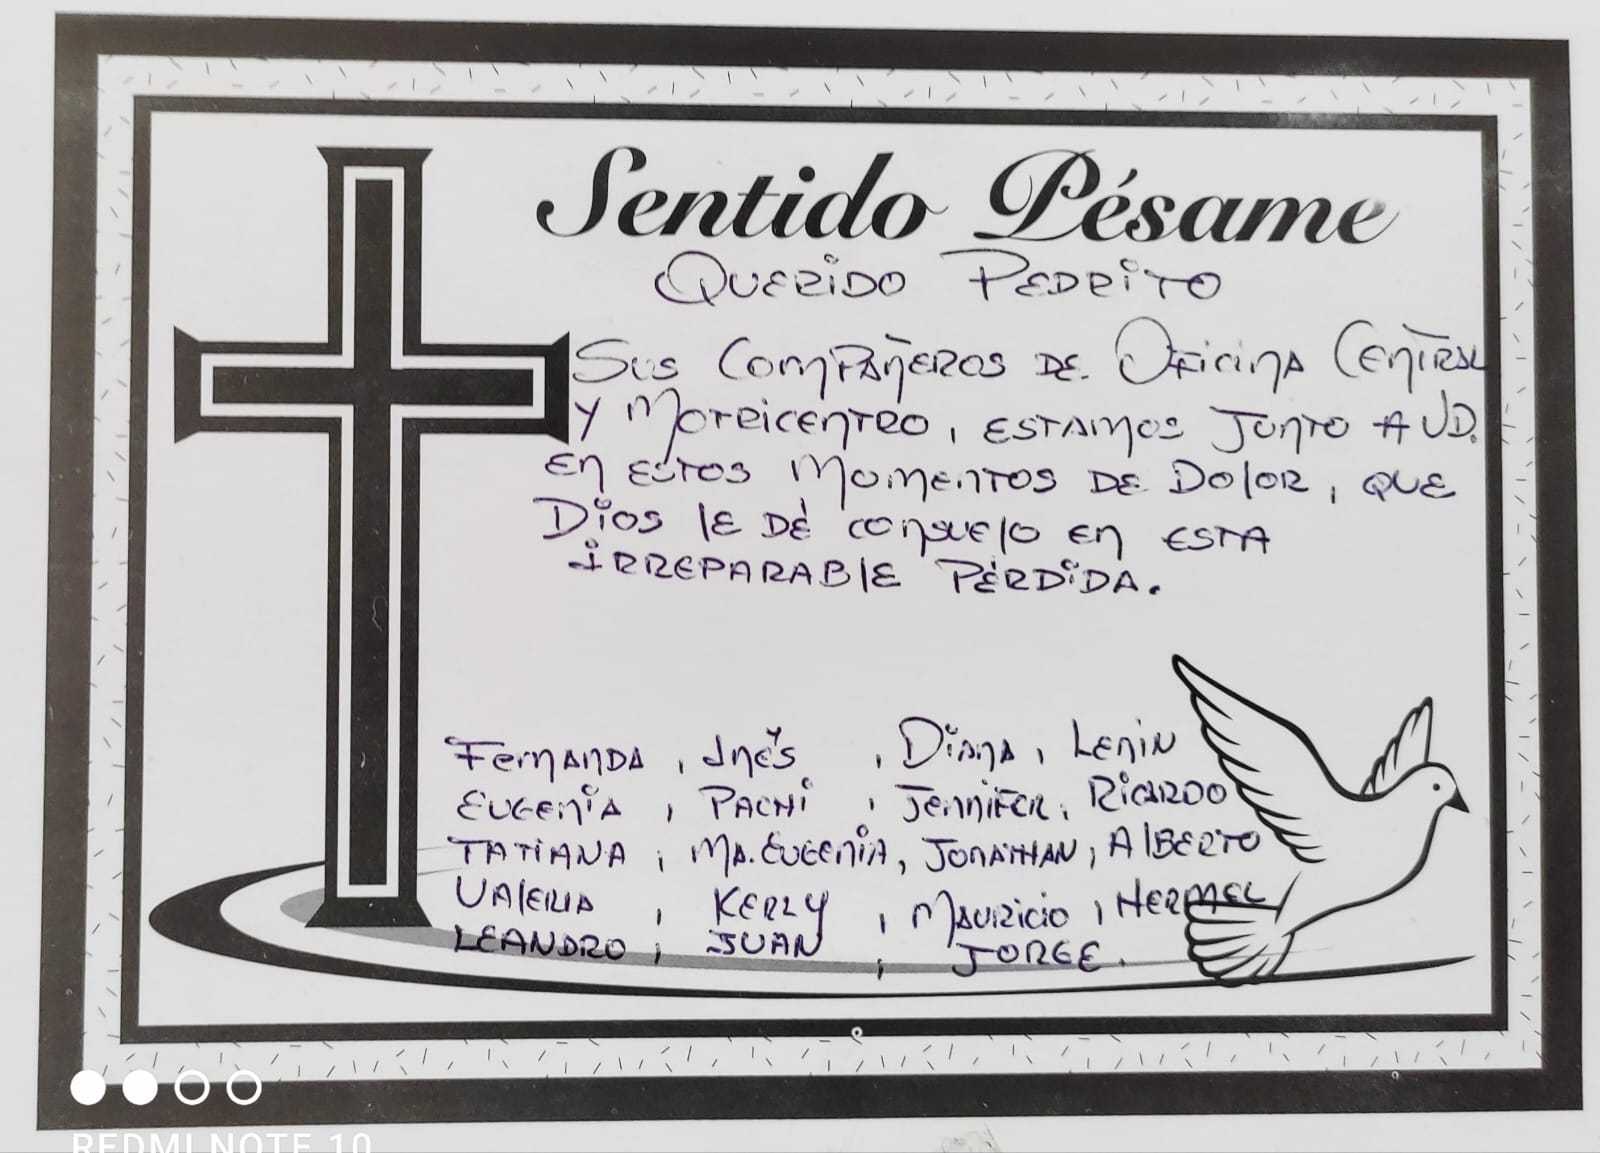 Sentido Pésame
QUERIDO PEDRITO
SUS COMPAÑEROS DE OFICINA CENTRAL
Y MOTRICENTRO, ESTAMOS JUNTO A UD.
EN ESTOS MOMENTOS DE DOLOR, QUE
DIOS LE DÉ CONSUELO EN ESTA
IRREPARABLE PÉRDIDA.
FERNANDA, INÉS, DIANA, LENIN
EUGENIA, PACHI, JENNIFER, RICARDO
TATIANA, MA. EUGENIA, JONATHAN, ALBERTO
VALERIA, KERLY, MAURICIO, HERMEL
LEANDRO, JUAN, JORGE.
REDMI NOTE 10